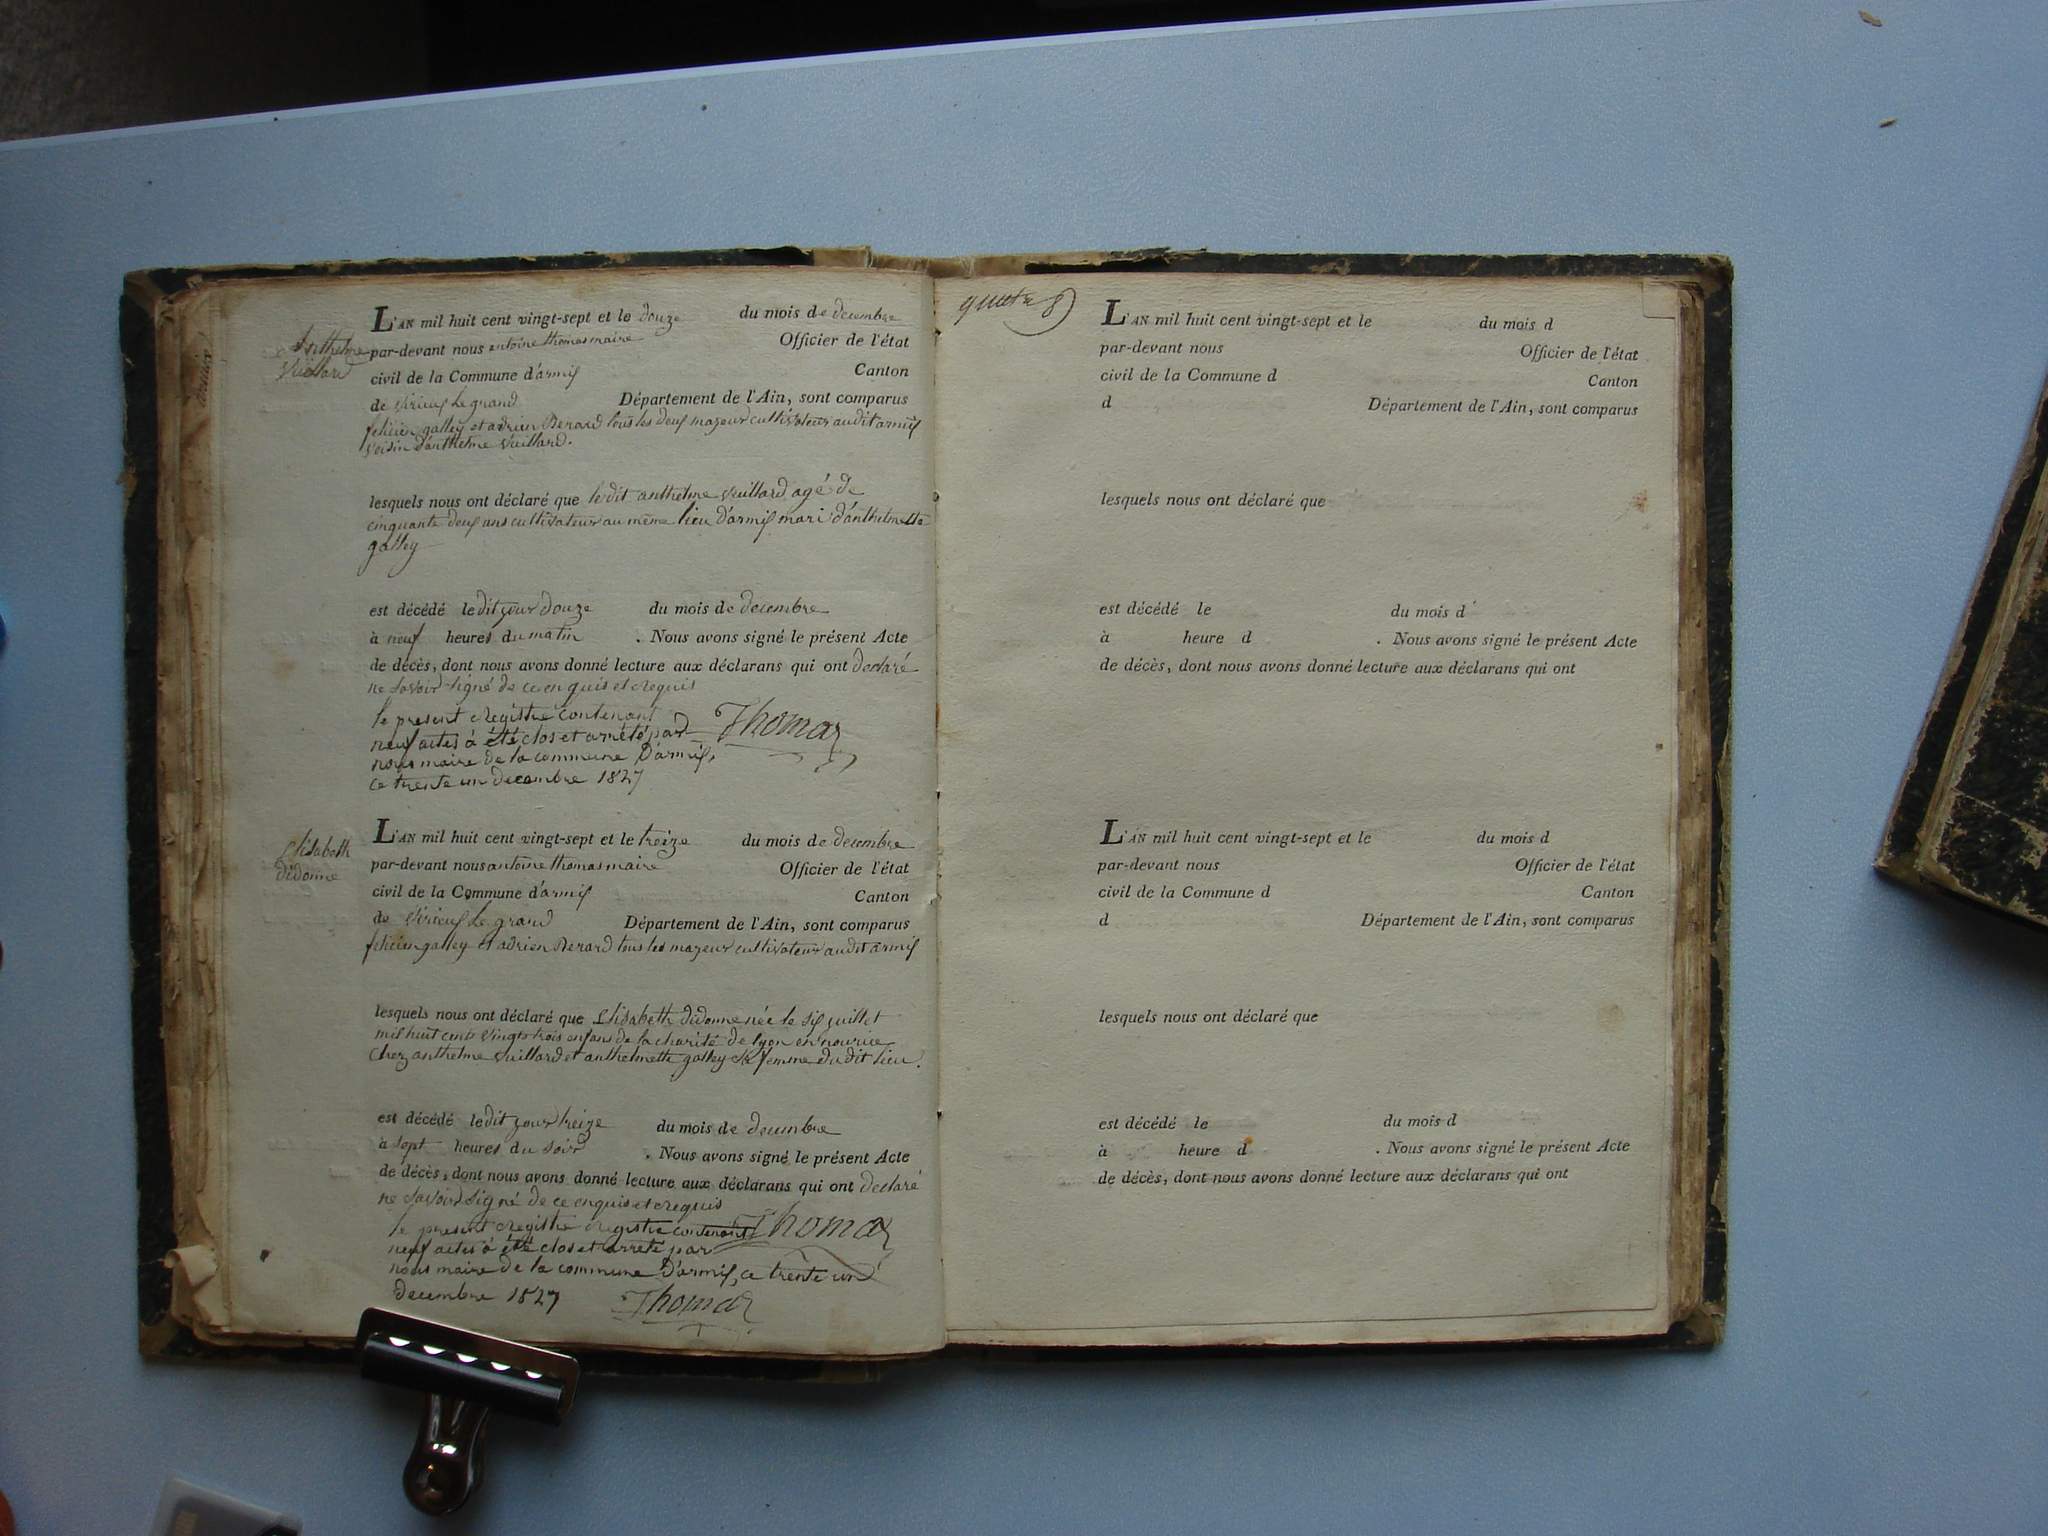 Anthelme
Vuillard
L'AN mil huit cent vingt-sept et le douze du mois de decembre
par-devant nous antoine thomas maire Officier de l'état
civil de la Commune d'armif Canton
de virieuf le grand Département de l'Ain, sont comparus
felicien galley et adrien Berard tous les deuf majeur cultivateur audit armif
voisin d'anthelme Vuillard.
lesquels nous ont déclaré que le dit anthelme Vuillard agé de
cinquante deuf ans cultivateur au même lieu D'armif mari d'anthelmette
galley
est décédé le dit jour douze du mois de decembre
à neuf heures du matin . Nous avons signé le présent Acte
de décès, dont nous avons donné lecture aux déclarans qui ont declaré
ne savoir signé de ce enquis et requis
le present registre contenant Thomas
neuf actes à été clos et arrété par
nous maire de la commune D'armif,
ce trente un decembre 1827
Elisabeth
didonne
L'AN mil huit cent vingt-sept et le treize du mois de decembre
par-devant nous antoine thomas maire Officier de l'état
civil de la Commune d'armif Canton
de virieuf le grand Département de l'Ain, sont comparus
felicien galley et adrien Berard tous les majeur cultivateur audit armif
lesquels nous ont déclaré que Elisabeth didonne née le sif juillet
mil huit cents vingt trois enfans de la charité de lyon en nourice
Chez anthelme Vuillard et anthelmette galley sa femme du dit lieu.
est décédé le dit jour treize du mois de decembre
à sept heures du soir . Nous avons signé le présent Acte
de décès, dont nous avons donné lecture aux déclarans qui ont declaré
ne savoir signé de ce enquis et requis
le present registre registre contenant Thomas
neuf actes à été clos et arreté par
nous maire de la commune D'armif, ce trente un
decembre 1827 Thomas
L'AN mil huit cent vingt-sept et le du mois d
par-devant nous Officier de l'état
civil de la Commune d Canton
d Département de l'Ain, sont comparus
lesquels nous ont déclaré que
est décédé le du mois d
à heure d . Nous avons signé le présent Acte
de décès, dont nous avons donné lecture aux déclarans qui ont
L'AN mil huit cent vingt-sept et le du mois d
par-devant nous Officier de l'état
civil de la Commune d Canton
d Département de l'Ain, sont comparus
lesquels nous ont déclaré que
est décédé le du mois d
à heure d . Nous avons signé le présent Acte
de décès, dont nous avons donné lecture aux déclarans qui ont